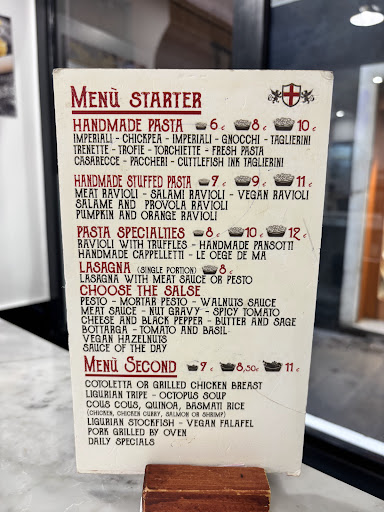 MENÙ STARTER
HANDMADE PASTA 6€ 8€ 10€
IMPERIALI - CHICKPEA - IMPERIALI - GNOCCHI - TAGLIERINI
TRENETTE - TROFIE - TORCHIETTE - FRESH PASTA
CASARECCE - PACCHERI - CUTTLEFISH INK TAGLIERINI
HANDMADE STUFFED PASTA 7€ 9€ 11€
MEAT RAVIOLI - SALAMI RAVIOLI - VEGAN RAVIOLI
SALAME AND PROVOLA RAVIOLI
PUMPKIN AND ORANGE RAVIOLI
PASTA SPECIALTIES 8€ 10€ 12€
RAVIOLI WITH TRUFFLES - HANDMADE PANSOTTI
HANDMADE CAPPELLETTI - LE OEGE DE MA
LASAGNA (SINGLE PORTION) 8€
LASAGNA WITH MEAT SAUCE OR PESTO
CHOOSE THE SALSE
PESTO - MORTAR PESTO - WALNUTS SAUCE
MEAT SAUCE - NUT GRAVY - SPICY TOMATO
CHEESE AND BLACK PEPPER - BUTTER AND SAGE
BOTTARGA - TOMATO AND BASIL
VEGAN HAZELNUTS
SAUCE OF THE DAY
MENÙ SECOND 7€ 8,50€ 11€
COTOLETTA OR GRILLED CHICKEN BREAST
LIGURIAN TRIPE - OCTOPUS SOUP
COUS COUS, QUINOA, BASMATI RICE
(CHICKEN, CHICKEN CURRY, SALMON OR SHRIMP)
LIGURIAN STOCKFISH - VEGAN FALAFEL
PORK GRILLED BY OVEN
DAILY SPECIALS